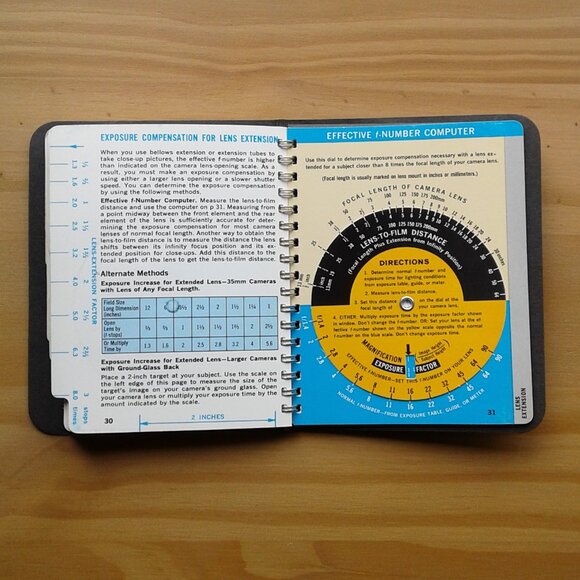 EXPOSURE COMPENSATION FOR LENS EXTENSION
When you use bellows extension or extension tubes to
take close-up pictures, the effective f-number is higher
than indicated on the camera lens-opening scale. As a
result, you must make an exposure compensation by
using either a larger lens opening or a slower shutter
speed. You can determine the exposure compensation
by using the following methods.
Effective f-Number Computer. Measure the lens-to-film
distance and use the computer on p 31. Measuring from
a point midway between the front element and the rear
element of the lens is sufficiently accurate for deter-
mining the exposure compensation for most camera
lenses of normal focal length. Another way to obtain the
lens-to-film distance is to measure the distance the lens
shifts between its infinity focus position and its ex-
tended position for close-ups. Add this distance to the
focal length of the lens to get the lens-to-film distance.
Alternate Methods
Exposure Increase for Extended Lens—35mm Cameras
with Lens of Any Focal Length.
Field Size
Long Dimension
(inches)
12
2½
2
1½
1¼
1
Open
Lens by
(f-stops)
⅔
1
1⅓
1⅔
2
2⅓
Or Multiply
Time by
1.3
1.6
2
2.5
3.2
4
5.6
Exposure Increase for Extended Lens—Larger Cameras
with Ground-Glass Back
Place a 2-inch target at your subject. Use the scale on
the left edge of this page to measure the size of the
target's image on your camera's ground glass. Open
your camera lens or multiply your exposure time by the
amount indicated by the scale.
30
2 INCHES
LENS-EXTENSION FACTOR
1.3
1.6
2.0
2.5
3.1
4.0
5.0
6.3
8.0 times
⅓
⅔
1
1⅓
1⅔
2
2⅓
2⅔
3 stops
EFFECTIVE f-NUMBER COMPUTER
Use this dial to determine exposure compensation necessary with a lens ex-
tended for a subject closer than 8 times the focal length of your camera lens.
(Focal length is usually marked on lens mount in inches or millimeters.)
FOCAL LENGTH OF CAMERA LENS
LENS-TO-FILM DISTANCE
(Focal Length Plus Extension from Infinity Position)
DIRECTIONS
1. Determine normal f-number and
exposure time for lighting conditions
from exposure table, guide, or meter.
2. Measure lens-to-film distance.
3. Set this distance on the dial at the
focal length of your camera lens.
4. EITHER: Multiply exposure time by the exposure factor shown
in window. Don't change the f-number. OR: Set your lens at the
f-number shown on the yellow scale opposite the normal
f-number on the blue scale. Don't change exposure time.
MAGNIFICATION
Image Height
Subject Height
EXPOSURE 1 FACTOR
EFFECTIVE f-NUMBER—SET THIS f-NUMBER ON YOUR LENS
NORMAL f-NUMBER—FROM EXPOSURE TABLE, GUIDE, OR METER
31
LENS
EXTENSION